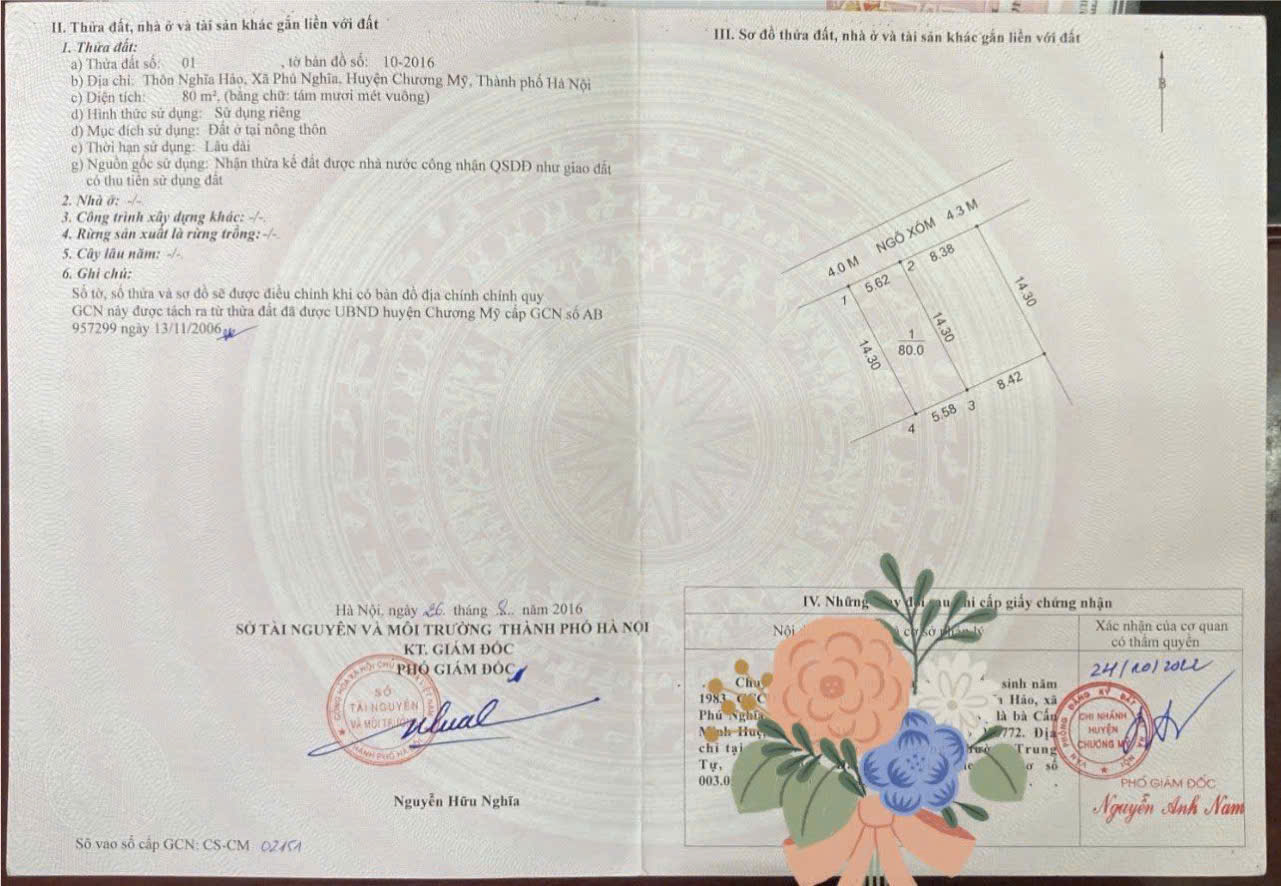 II. Thửa đất, nhà ở và tài sản khác gắn liền với đất
1. Thửa đất:
a) Thửa đất số: 01 , tờ bản đồ số: 10-2016
b) Địa chỉ: Thôn Nghĩa Hảo, Xã Phú Nghĩa, Huyện Chương Mỹ, Thành phố Hà Nội
c) Diện tích: 80 m², (bằng chữ: tám mươi mét vuông)
d) Hình thức sử dụng: Sử dụng riêng
đ) Mục đích sử dụng: Đất ở tại nông thôn
e) Thời hạn sử dụng: Lâu dài
g) Nguồn gốc sử dụng: Nhận thừa kế đất được nhà nước công nhận QSDĐ như giao đất
có thu tiền sử dụng đất
2. Nhà ở: -/-
3. Công trình xây dựng khác: -/-.
4. Rừng sản xuất là rừng trồng: -/-
5. Cây lâu năm: -/-
6. Ghi chú:
Số tờ, số thửa và sơ đồ sẽ được điều chỉnh khi có bản đồ địa chính chính quy
GCN này được tách ra từ thửa đất đã được UBND huyện Chương Mỹ cấp GCN số AB
957299 ngày 13/11/2006
Hà Nội, ngày 26 tháng 8 năm 2016
SỞ TÀI NGUYÊN VÀ MÔI TRƯỜNG THÀNH PHỐ HÀ NỘI
KT. GIÁM ĐỐC
PHÓ GIÁM ĐỐC
SỞ
TÀI NGUYÊN
VÀ MÔI TRƯỜNG
Nguyễn Hữu Nghĩa
Số vào sổ cấp GCN: CS-CM 02151
III. Sơ đồ thửa đất, nhà ở và tài sản khác gắn liền với đất
B
4.0 M NGÕ XÓM 4.3 M
1 5.62 2 8.38
14.30 14.30 14.30
1
80.0
4 5.58 3 8.42
IV. Những đổi sau khi cấp giấy chứng nhận
Nội cơ sở pháp lý
Xác nhận của cơ quan
có thẩm quyền
24/10/2022
sinh năm
1983, Hảo, xã
Phú Nghĩa là bà Cấn
772. Địa
chỉ tại Trung
Tự, số
003.0
VĂN PHÒNG ĐĂNG KÝ ĐẤT
CHI NHÁNH
HUYỆN
CHƯƠNG MỸ
PHÓ GIÁM ĐỐC
Nguyễn Anh Nam